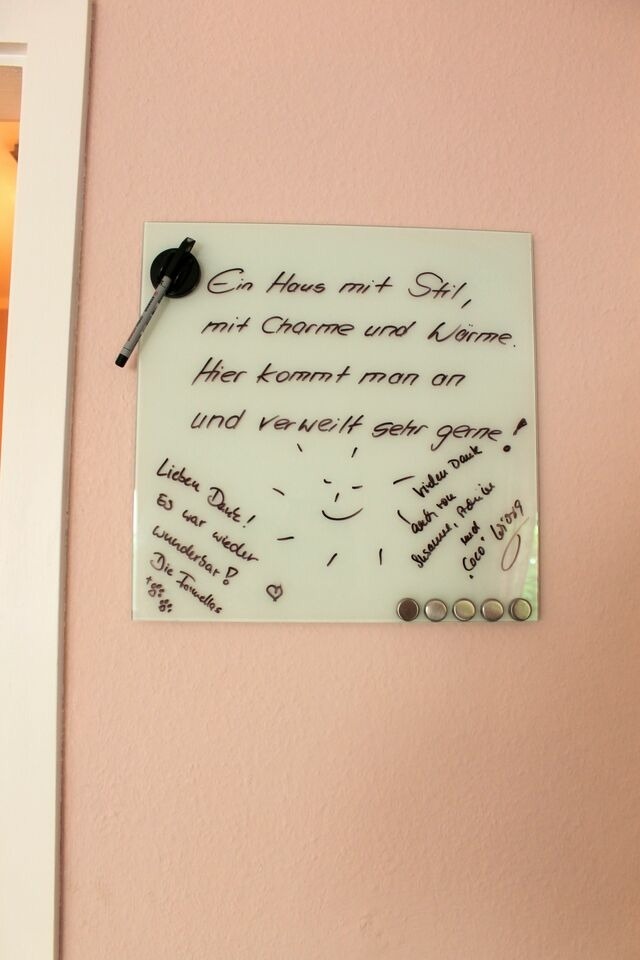 Ein Haus mit Stil,
mit Charme und Wärme.
Hier kommt man an
und verweilt sehr gerne!
Lieben Dank!
Es war wieder
wunderbar!
Die
Vielen Dank
auch von
Susanne,
und
"Coco"